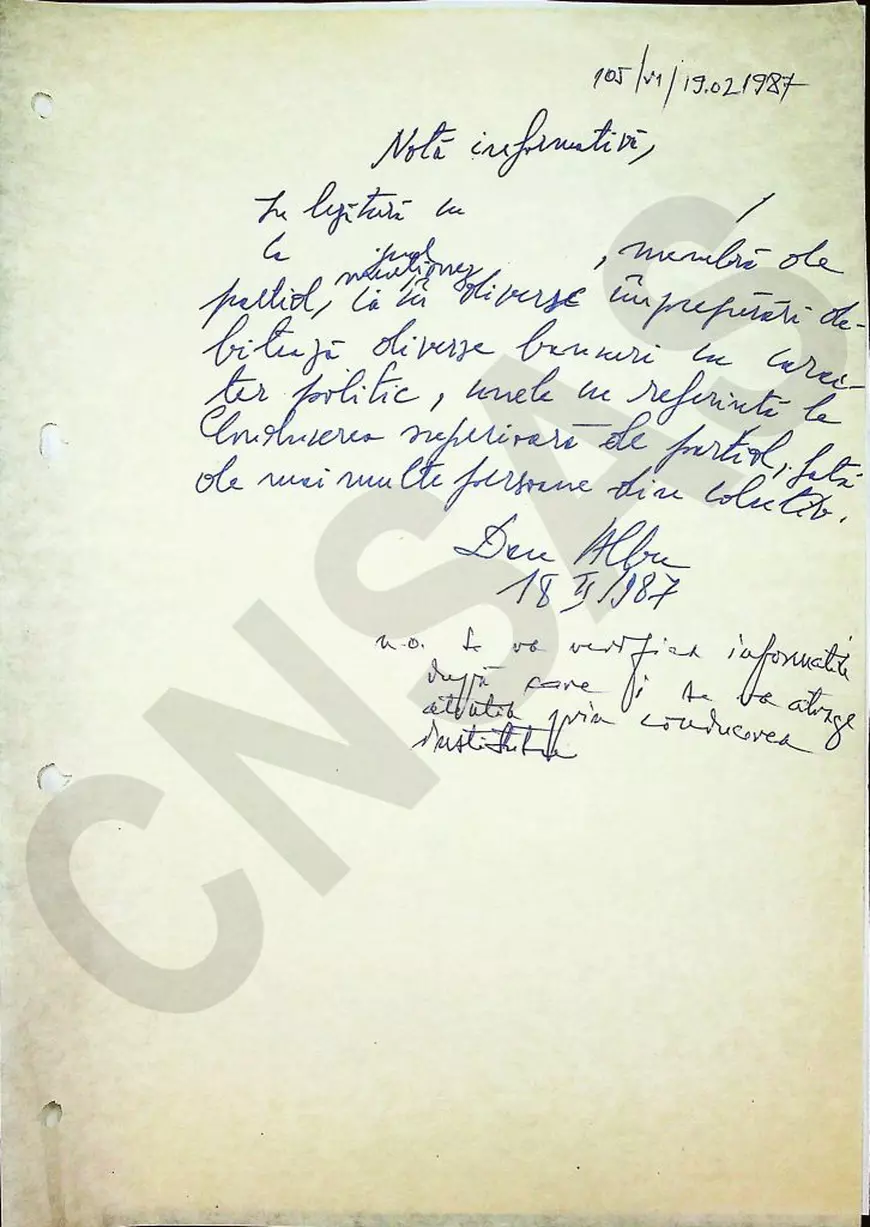 105/VI/19.02.1987
Notă informativă,
In legătură cu
la , membră de
menționez
partid, că în diverse împrejurări de-
bitează diverse bancuri cu carac-
ter politic, unele cu referință la
Conducerea superioară de partid, față
de mai multe persoane din colectiv.
Dan Albu
18 II 1987
n.o. Se va verifica informatiile
după care i se va atrage
atentia prin conducerea
institutului
CNSAS